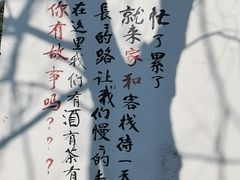 忙了累了
就来家和客栈待一天
长的路让我们慢的走
在这里我们有酒有茶有
你有故事吗???